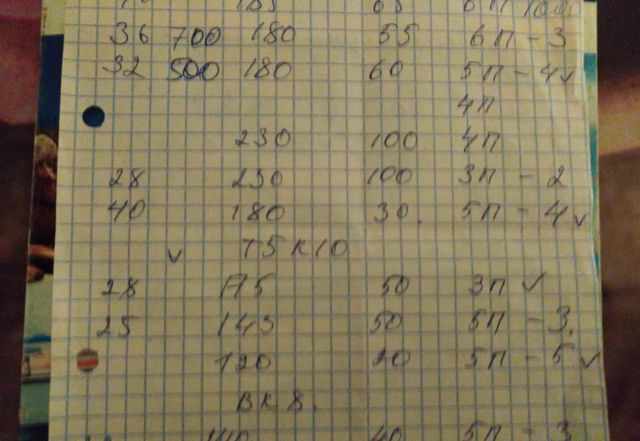 36 700 180 55 6П - 3
32 500 180 60 5П - 4 ✓
4П
230 100 4П
28 230 100 3П - 2
40 180 30. 5П - 4 ✓
✓ Т5К10
28 50 3П ✓
25 145 50 5П - 3.
120 20 5П - 5 ✓
ВК 8.
140 40 5П - 3